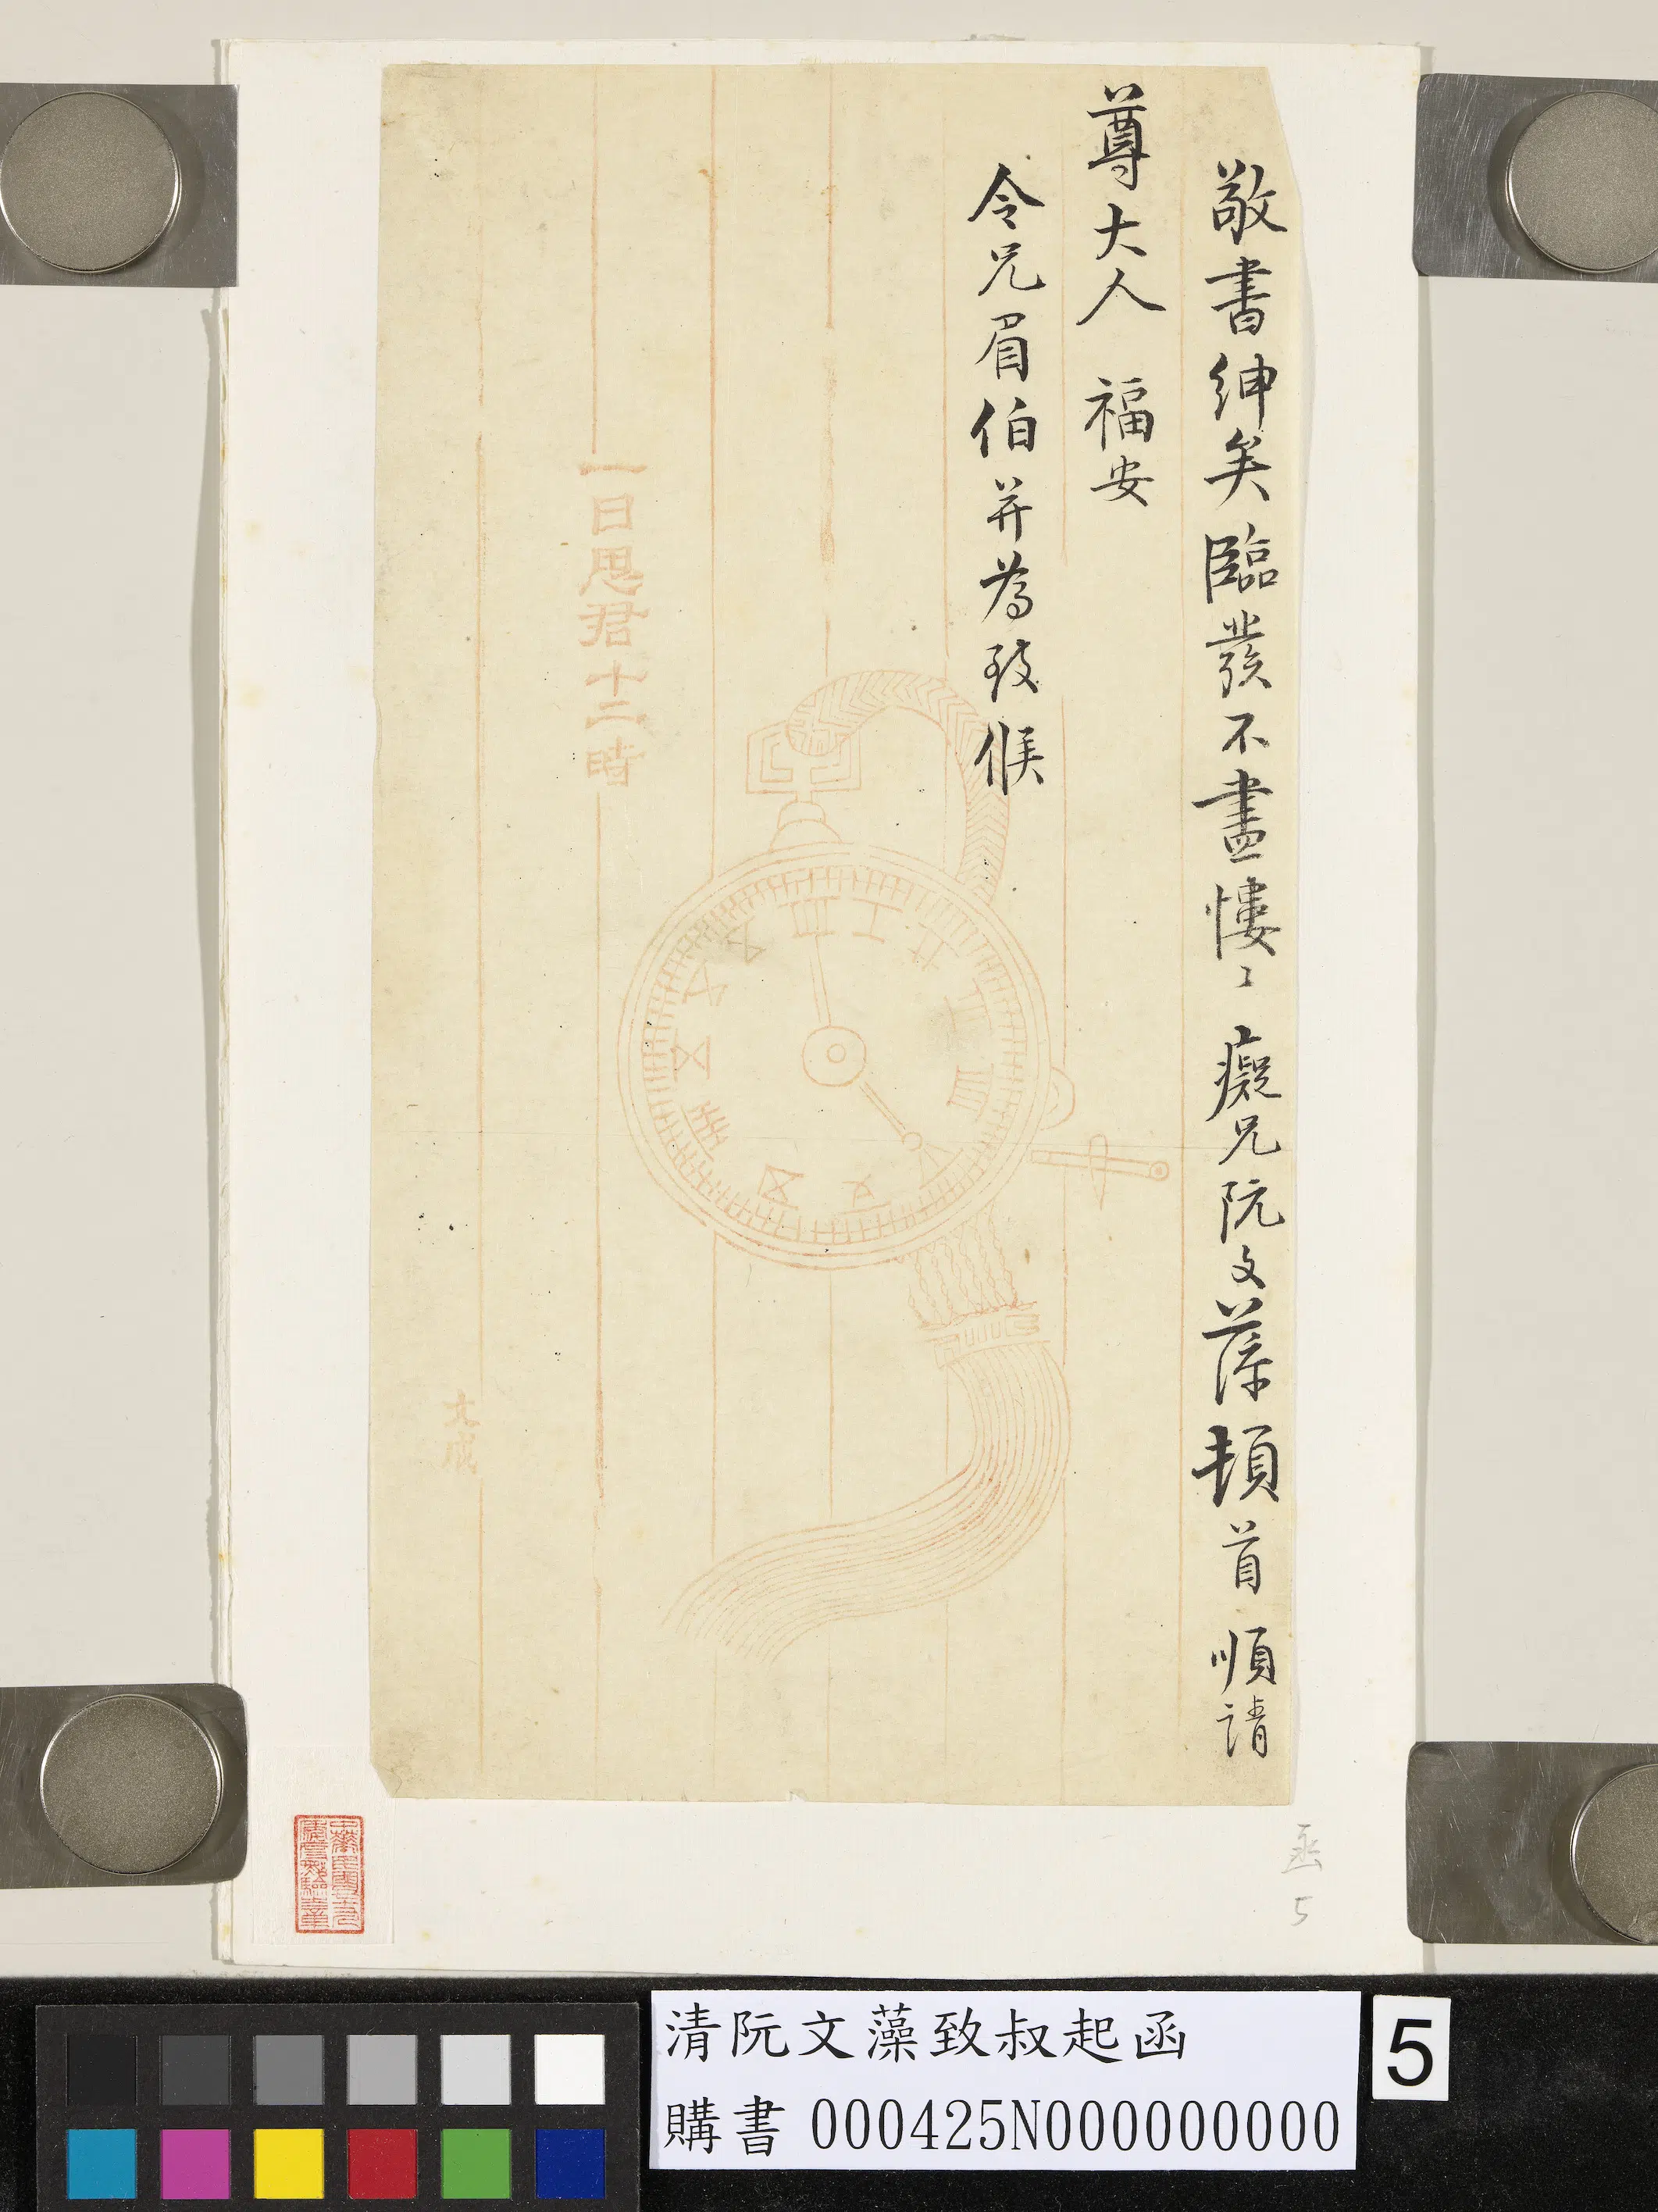 敬書紳矣臨發不盡慺〻癡兄阮文藻頓首順請
尊大人福安
令兄眉伯并為致候
一日思君十二時
文成
函
5
清阮文藻致叔起函
購書 000425N000000000
5